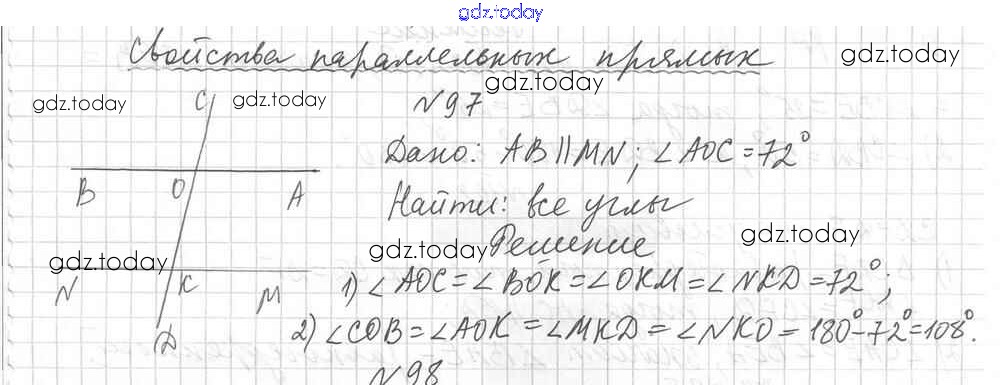 gdz.today
Свойства параллельных прямых
gdz.today
gdz.today
gdz.today
gdz.today
N 97
C
Дано: AB || MN; ∠AOC = 72°
B O A
Найти: все углы
gdz.today
gdz.today
gdz.today
Решение
N K M
1) ∠AOC = ∠BOK = ∠OKM = ∠NKD = 72°;
D
2) ∠COB = ∠AOK = ∠MKD = ∠NKO = 180° - 72° = 108°.
N 98